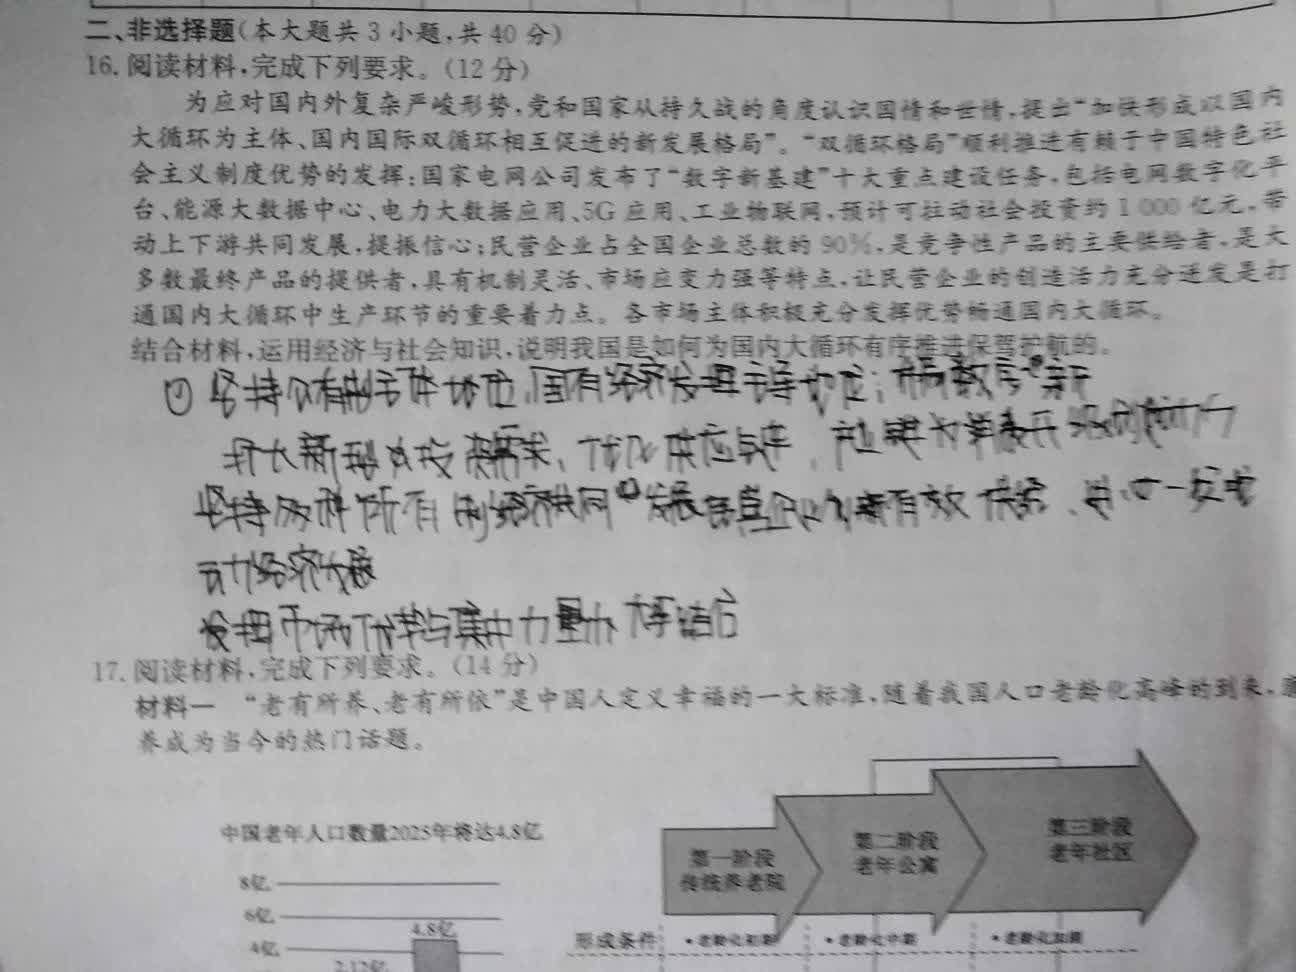 二、非选择题(本大题共3小题,共40分)
16.阅读材料,完成下列要求。(12分)
为应对国内外复杂严峻形势,党和国家从持久战的角度认识国情和世情,提出“加快形成以国内
大循环为主体、国内国际双循环相互促进的新发展格局”。“双循环格局”顺利推进有赖于中国特色社
会主义制度优势的发挥:国家电网公司发布了“数字新基建”十大重点建设任务,包括电网数字化平
台、能源大数据中心、电力大数据应用、5G应用、工业物联网,预计可拉动社会投资约1000亿元,带
动上下游共同发展,提振信心;民营企业占全国企业总数的90%,是竞争性产品的主要供给者,是大
多数最终产品的提供者,具有机制灵活、市场应变力强等特点,让民营企业的创造活力充分迸发是打
通国内大循环中生产环节的重要着力点。各市场主体积极充分发挥优势畅通国内大循环。
结合材料,运用经济与社会知识,说明我国是如何为国内大循环有序推进保驾护航的。
①坚持公有制主体地位,国有经济发挥主导地位;
扩大新型 需求、优化供应
坚持多种所有制经济共同发展 民营企业 有效供给、
动经济发展
发挥市场 与集中力量办大事结合
17.阅读材料,完成下列要求。(14分)
材料一 “老有所养、老有所依”是中国人定义幸福的一大标准,随着我国人口老龄化高峰的到来,
养成为当今的热门话题。
中国老年人口数量2025年将达4.8亿
8亿
6亿
4亿
4.8亿
2.12亿
第一阶段
传统养老院
第二阶段
老年公寓
第三阶段
老年社区
形成条件
•老龄化初期
•老龄化中期
•老龄化加剧